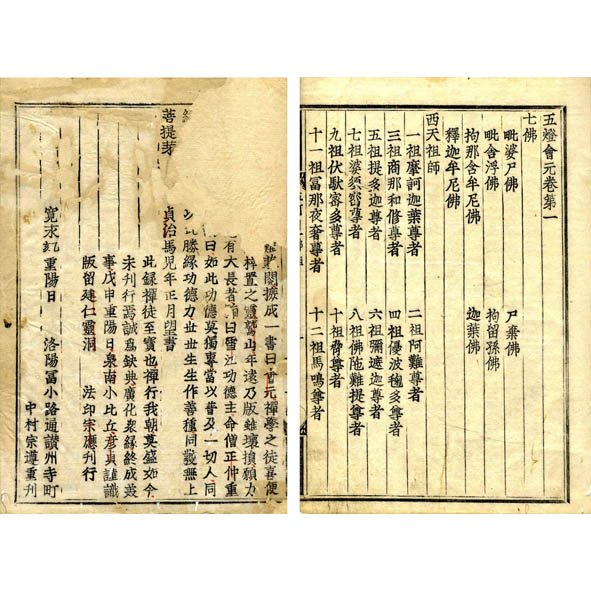 五燈會元卷第一
七佛
毗婆尸佛 尸棄佛
毗舍浮佛 拘留孫佛
拘那含牟尼佛 迦葉佛
釋迦牟尼佛
西天祖師
一祖摩訶迦葉尊者 二祖阿難尊者
三祖商那和修尊者 四祖優波毱多尊者
五祖提多迦尊者 六祖彌遮迦尊者
七祖婆須蜜尊者 八祖佛陁難提尊者
九祖伏馱蜜多尊者 十祖脅尊者
十一祖冨那夜奢尊者 十二祖馬鳴尊者
閣撫成一書曰會元禪學之徒喜便
梓置之靈鷲山年遠乃版雖壞損願力
有大長者 曰雪江功德主命僧正仲重
曰如此功德莫獨專當以普及一切人同
勝緣功德力世世生生作善種同證無上
菩提芽 貞治馬児年正月望書
此録禪徒至寶也禪行我朝莫盛如今
未刊行焉誠為欽典廣化衆緣終成茲
事戊申重陽日泉南小比丘彦貞謹識
版留建仁靈洞 法印宗應刊行
寛永 重陽日 洛陽冨小路通讃州寺町
中村宗遵重刊